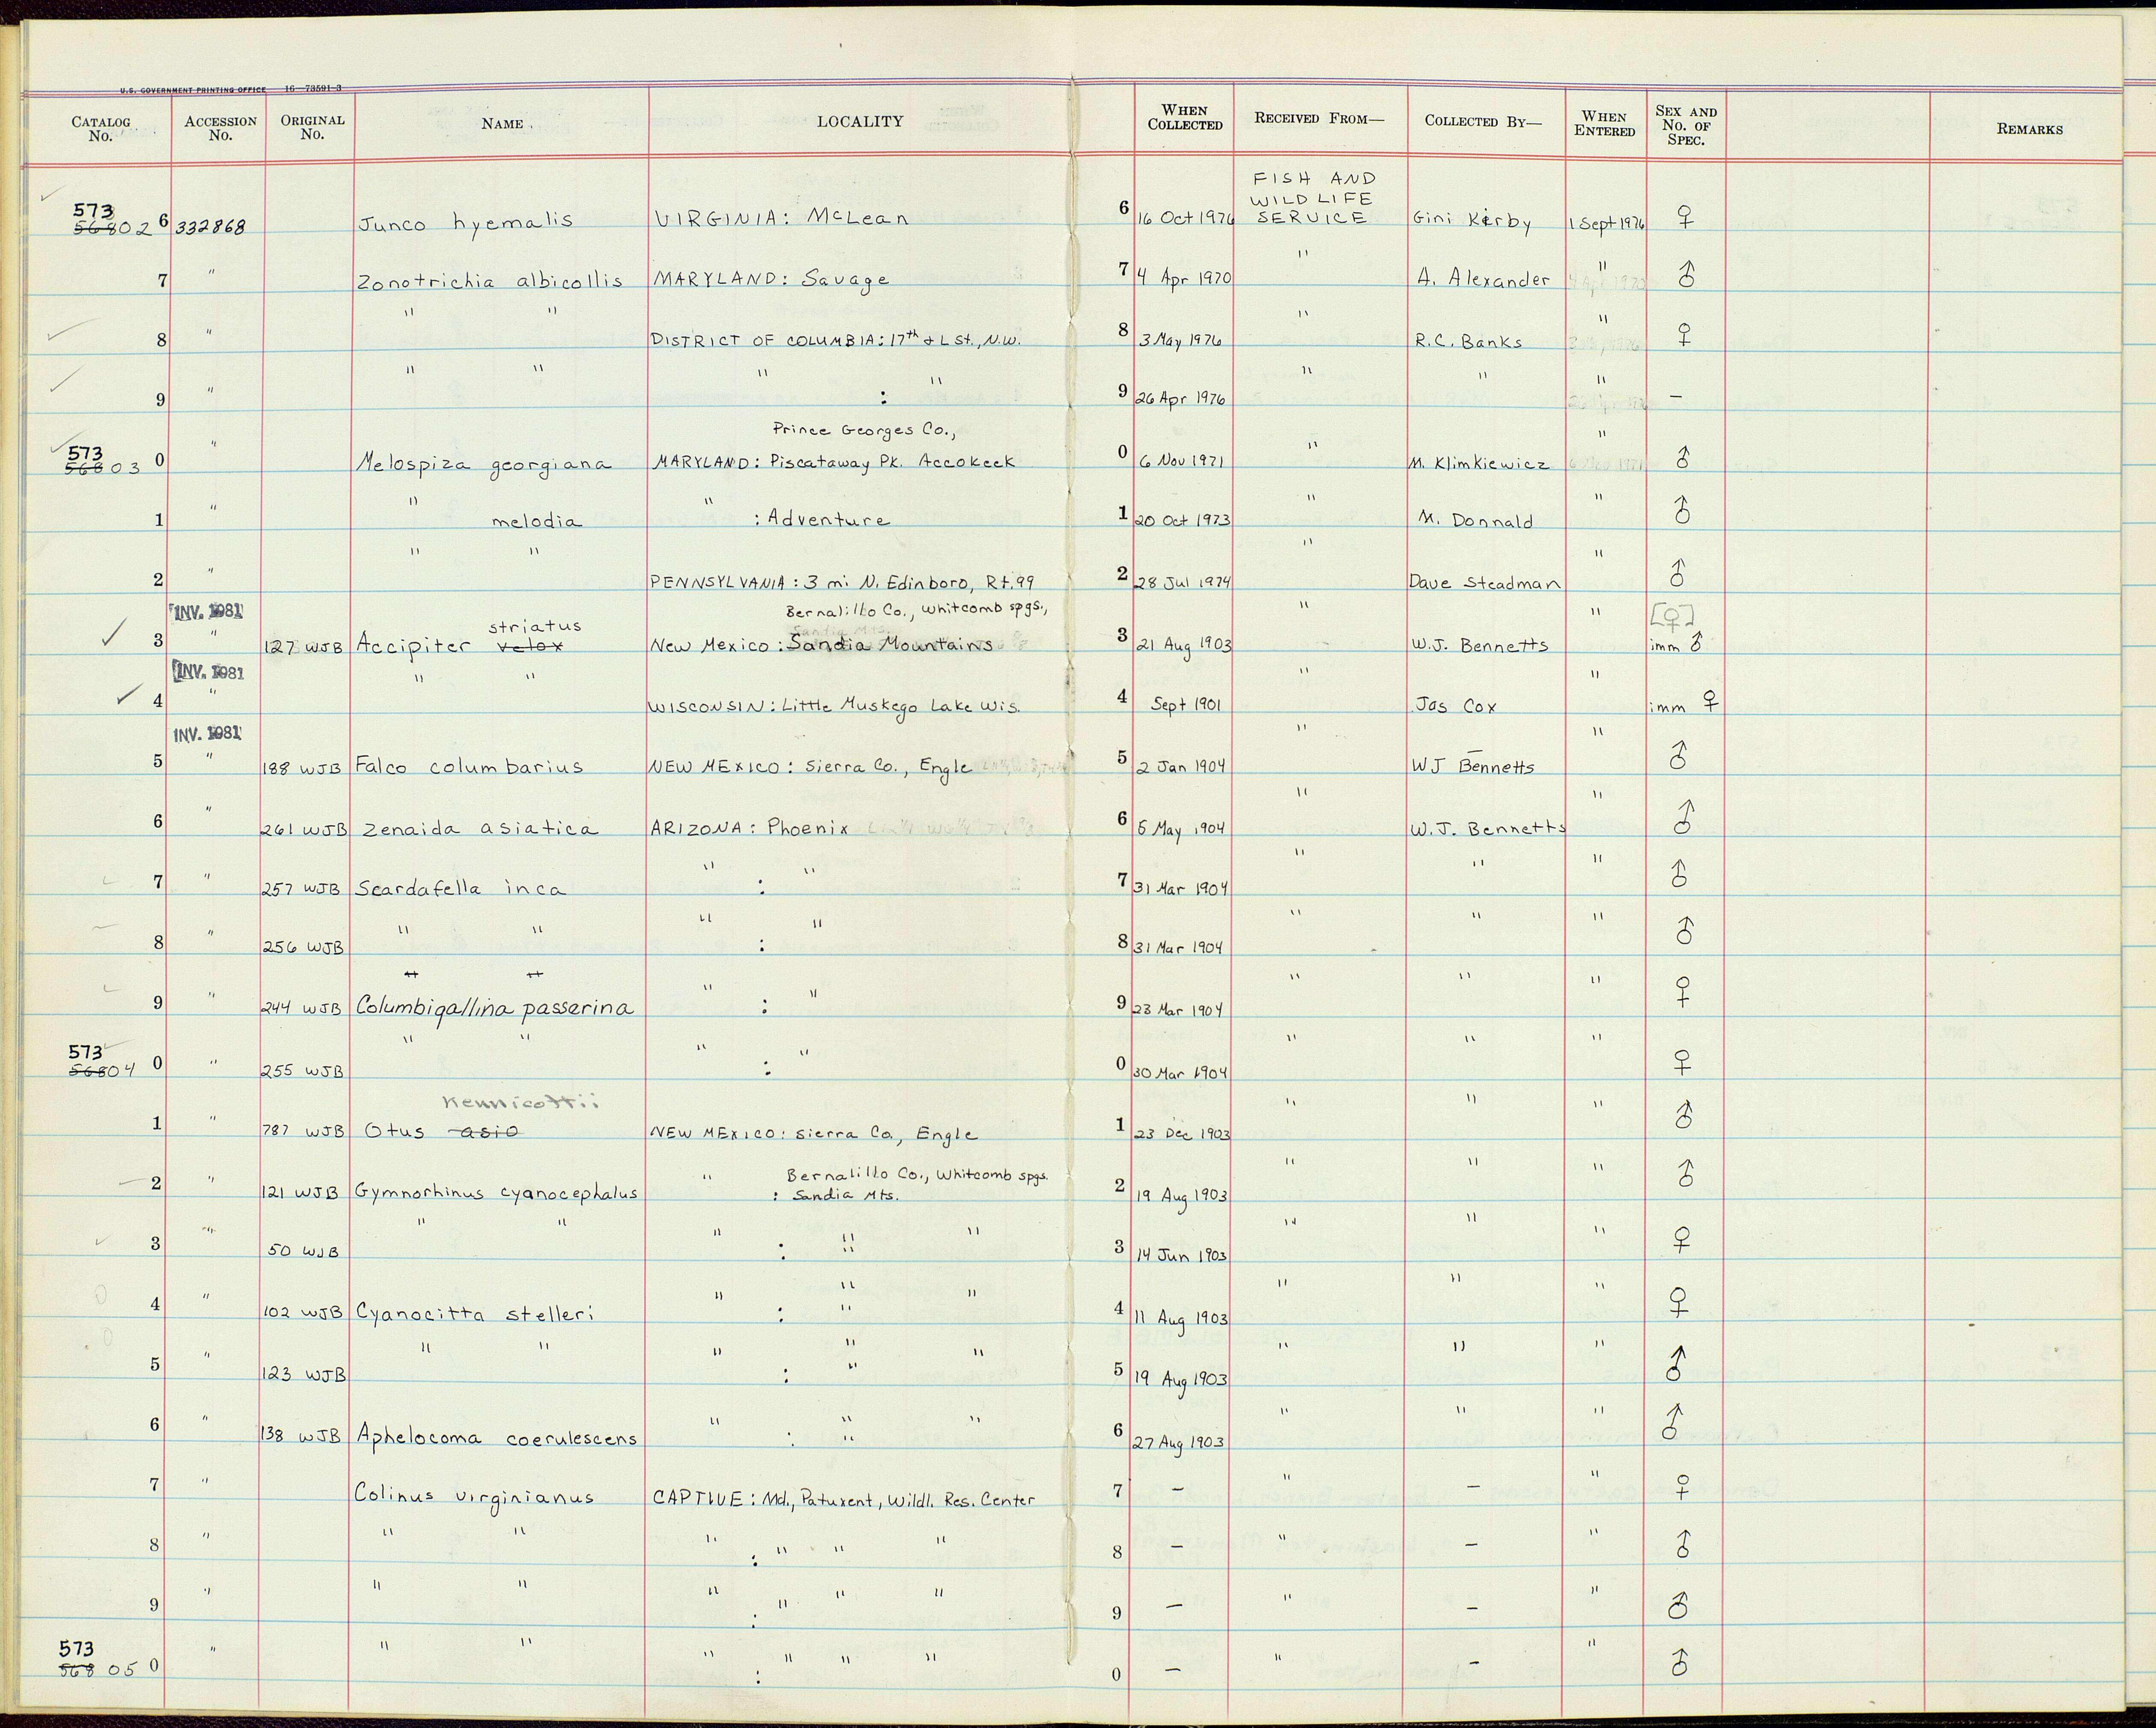 U.S. GOVERNMENT PRINTING OFFICE 16—73591-3
CATALOG No. ACCESSION No. ORIGINAL No. NAME LOCALITY WHEN COLLECTED RECEIVED FROM— COLLECTED BY— WHEN ENTERED SEX AND No. OF SPEC. REMARKS
573 FISH AND WILDLIFE SERVICE
568026 332868 Junco hyemalis VIRGINIA: McLean 6 16 Oct 1976 Gini Kirby 1 Sept 1976 ♀
7 " Zonotrichia albicollis MARYLAND: Savage 7 4 Apr 1970 " A. Alexander " ♂
8 " " " DISTRICT OF COLUMBIA: 17th & L St., N.W. 8 3 May 1976 " R.C. Banks " ♀
9 " " " " : " 9 26 Apr 1976 " " " —
573 Prince Georges Co.,
568030 " Melospiza georgiana MARYLAND: Piscataway Pk. Accokeek 0 6 Nov 1971 " M. Klimkiewicz " ♂
1 " " melodia " : Adventure 1 20 Oct 1973 " M. Donnald " ♂
2 " " " PENNSYLVANIA: 3 mi N. Edinboro, Rt. 99 2 28 Jul 1974 " Dave Steadman " ♂
INV. 1981 striatus Bernalillo Co., Whitcomb spgs., [♀]
3 " 127 WJB Accipiter velox New Mexico: Sandia Mountains 3 21 Aug 1903 " W.J. Bennetts " imm ♂
INV. 1981
4 " " " WISCONSIN: Little Muskego Lake Wis. 4 Sept 1901 " Jas Cox " imm ♀
INV. 1981
5 " 188 WJB Falco columbarius NEW MEXICO: Sierra Co., Engle 5 2 Jan 1904 " WJ Bennetts " ♂
6 " 261 WJB Zenaida asiatica ARIZONA: Phoenix 6 5 May 1904 " W.J. Bennetts " ♂
7 " 257 WJB Scardafella inca " : " 7 31 Mar 1904 " " " ♂
8 " 256 WJB " " " : " 8 31 Mar 1904 " " " ♂
" "
9 " 244 WJB Columbigallina passerina " : " 9 23 Mar 1904 " " " ♀
573
568040 " 255 WJB " " " : " 0 30 Mar 1904 " " " ♀
kennicottii
1 " 787 WJB Otus asio NEW MEXICO: Sierra Co., Engle 1 23 Dec 1903 " " " ♂
Bernalillo Co., Whitcomb spgs.
2 " 121 WJB Gymnorhinus cyanocephalus " : Sandia Mts. 2 19 Aug 1903 " " " ♂
3 " 50 WJB " " " : " " " 3 14 Jun 1903 " " " ♀
4 " 102 WJB Cyanocitta stelleri " : " " " 4 11 Aug 1903 " " " ♀
5 " 123 WJB " " " : " " " 5 19 Aug 1903 " " " ♂
6 " 138 WJB Aphelocoma coerulescens " : " " " 6 27 Aug 1903 " " " ♂
7 " Colinus virginianus CAPTIVE: Md., Patuxent, Wildl. Res. Center 7 — " — " ♀
8 " " " " : " " " 8 — " — " ♂
9 " " " " : " " " 9 — " — " ♂
573
568050 " " " " : " " " 0 — " — " ♂